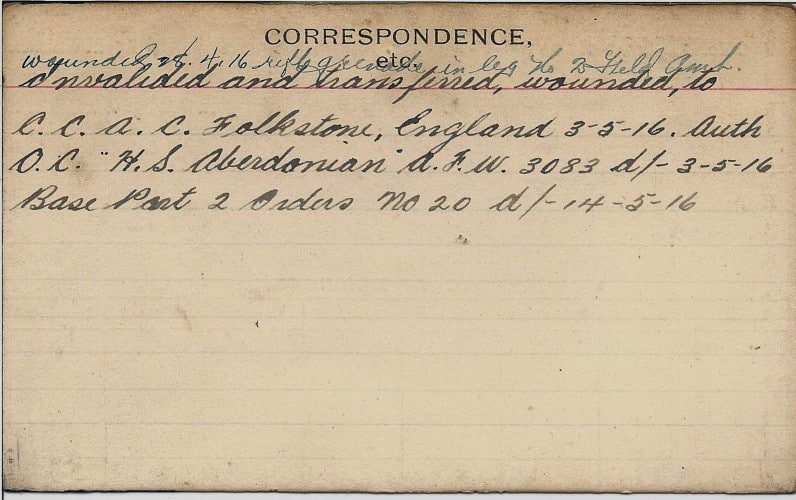 CORRESPONDENCE,
etc.
wounded 28.4.16 rifle grenade in leg No 2 Field Amb.
Invalided and transferred, wounded, to
C. C. A. C. Folkstone, England 3-5-16. Auth
O.C. "H.S. Aberdonian" A.F.W. 3083 d/- 3-5-16
Base Part 2 Orders No 20 d/- 14-5-16